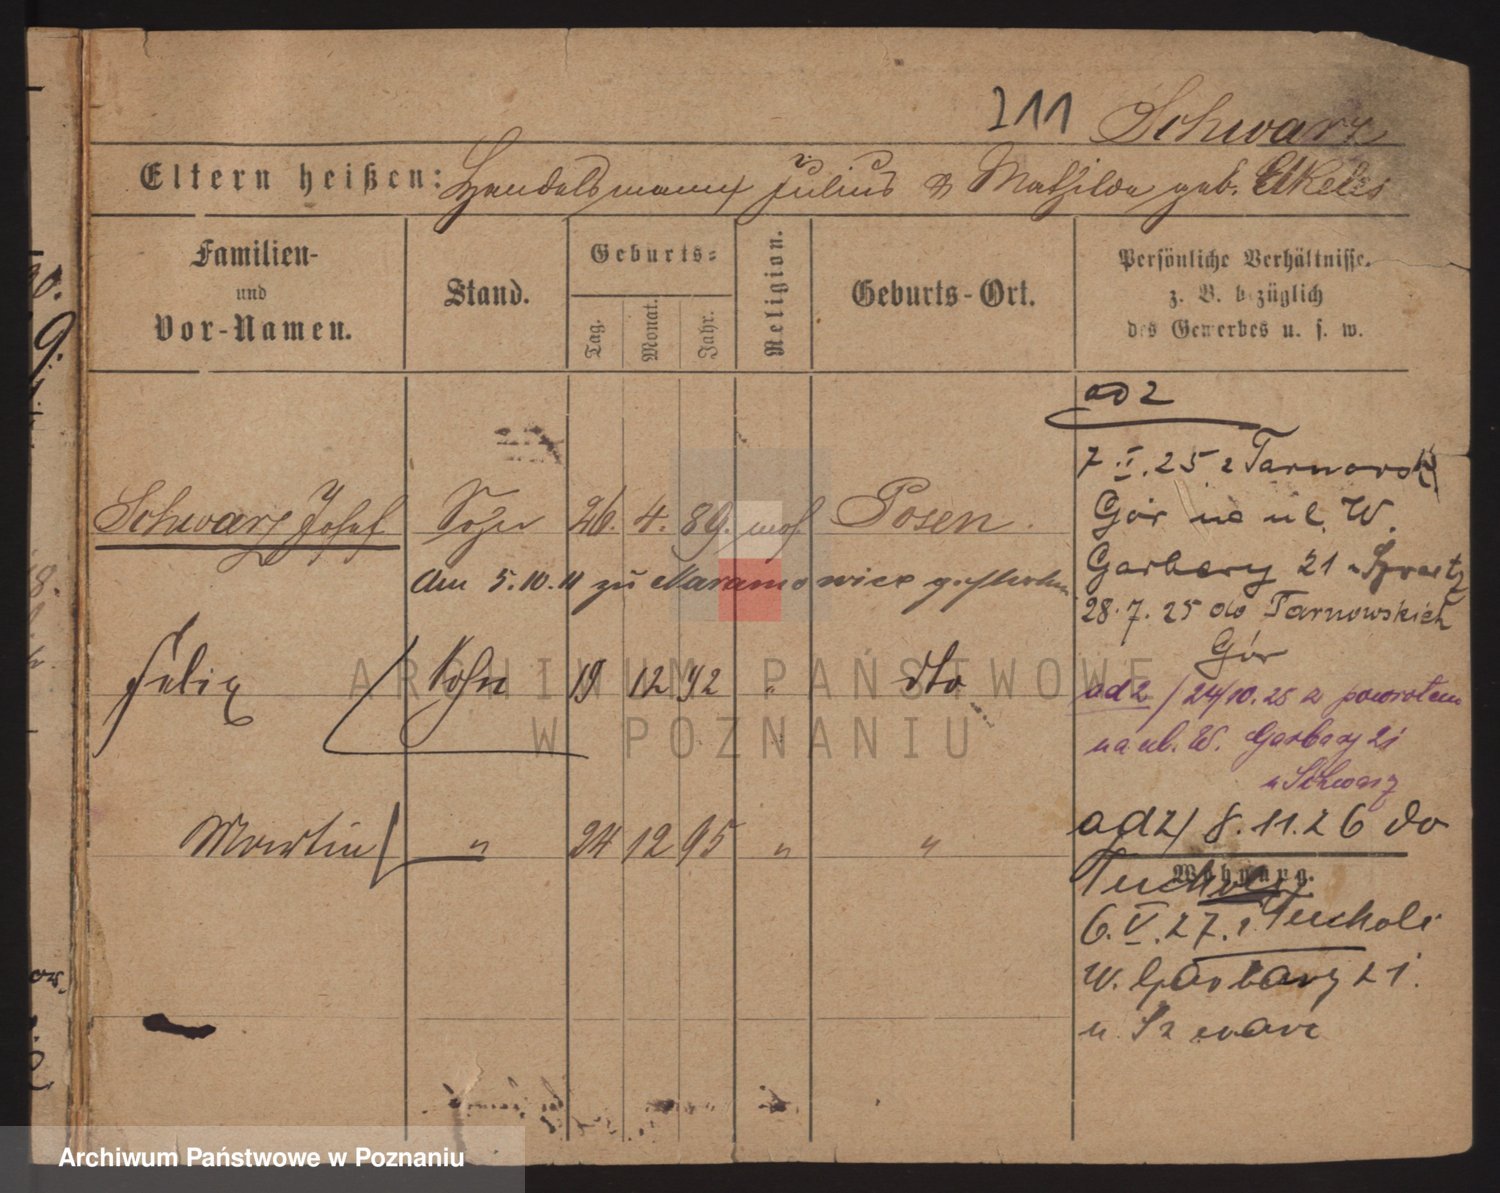 211 Schwarz
Eltern heißen: Handelsmann Julius & Mathilde geb. Elkeles
Familien-
und
Vor-Namen.
Stand.
Geburts-
Tag.
Monat.
Jahr.
Religion.
Geburts-Ort.
Persönliche Verhältnisse.
z. B. bezüglich
des Gewerbes u. s. w.
ad 2
7.II.25 z Tarnowsk
Gór na ul. W.
Garbary 21
28.7.25 do Tarnowskich
Gór
ad 2 / 24/10.25 z powrotem
na ul. W. Garbary 21
u Schwarz
ad 2/ 8.11.26 do
Tucholi
Wohnung.
6.V.27. z Tucholi
W. Garbary 21.
u
Schwarz Josef Sohn 26. 4. 89. mos. Posen.
Am 5.10.11 zu Naramowice gestorben
Felix Sohn 19 12 92 " dto
Martin " 24 12 95 " "
ARCHIWUM PAŃSTWOWE
W POZNANIU
Archiwum Państwowe w Poznaniu